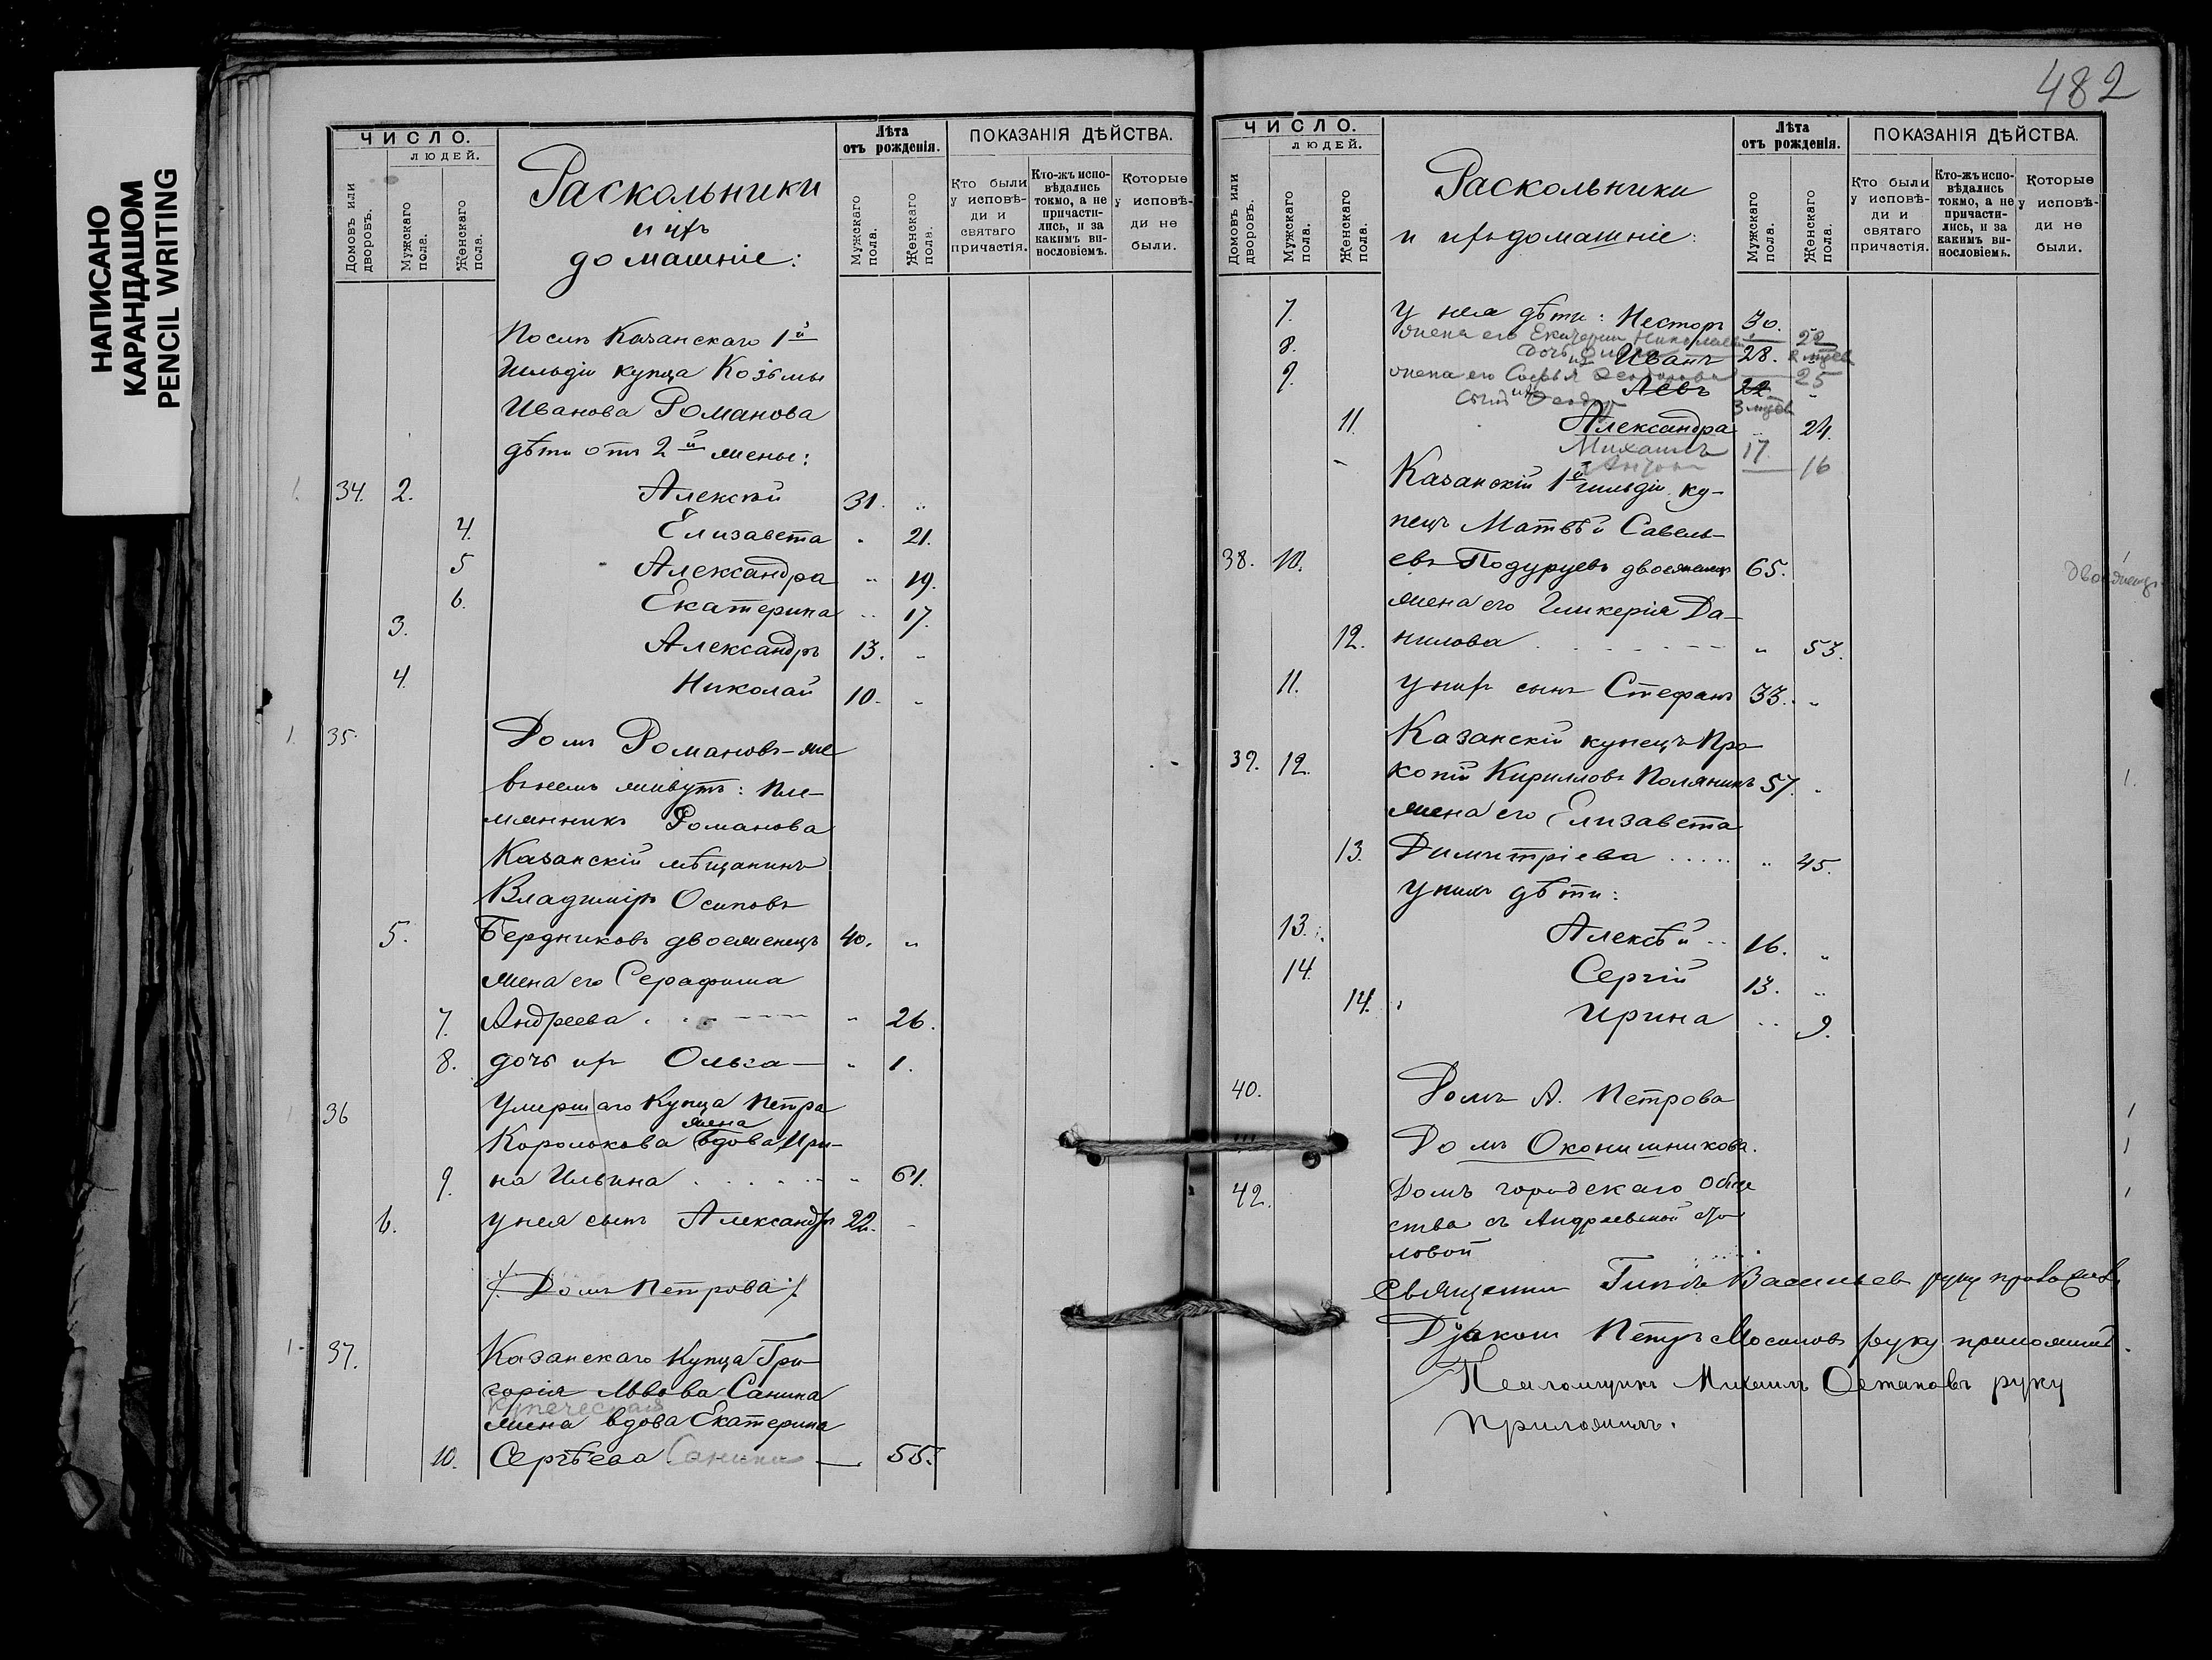 НАПИСАНО
КАРАНДАШОМ
PENCIL WRITING
ЧИСЛО.
ЛЮДЕЙ.
Домовъ или дворовъ.
Мужскаго пола.
Женскаго пола.
Раскольники
и ихъ
домашніе:
Лѣта
отъ рожденія.
Мужскаго пола.
Женскаго пола.
ПОКАЗАНІЯ ДѢЙСТВА.
Кто были
у исповѣ-
ди и
святаго
причастія.
Кто-жъ испо-
вѣдались
токмо, а не
причасти-
лись, и за
какимъ ви-
нословіемъ.
Которые
у исповѣ-
ди не
были.
Послѣ Казанскаго 1й
Гильдіи купца Козьмы
Иванова Романова
дѣти отъ 2й жены:
1. 34. 2. Алексѣй 31. "
4. Елизавета " 21.
5 Александра " 19.
6. Екатерина " 17.
3. Александръ 13. "
4. Николай 10. "
1. 35. Домъ Романовъ-же
въ немъ живутъ: пле-
мянникъ Романова
Казанскій мѣщанинъ
Владиміръ Осиповъ
5. Бердниковъ двоеженецъ 40. "
жена его Серафима
7. Андреева " 26.
8. дочь ихъ Ольга " 1.
1 36 Умершаго Купца Петра
жена
Королькова вдова Ири-
9. на Ильина " 61.
6. у нея сынъ Александръ 22. "
/. Домъ Петрова ./.
1. 37. Казанскаго Купца Гри-
горія Львова Санина
купеческая
жена вдова Екатерина
10. Сергѣева Санина — 55.
482
ЧИСЛО.
ЛЮДЕЙ.
Домовъ или дворовъ.
Мужскаго пола.
Женскаго пола.
Раскольники
и ихъ домашніе:
Лѣта
отъ рожденія.
Мужскаго пола.
Женскаго пола.
ПОКАЗАНІЯ ДѢЙСТВА.
Кто были
у исповѣ-
ди и
святаго
причастія.
Кто-жъ испо-
вѣдались
токмо, а не
причасти-
лись, и за
какимъ ви-
нословіемъ.
Которые
у исповѣ-
ди не
были.
7. У нея дѣти: Несторъ 30.
жена его Екатерина Николаева 22
дочь
8. Иванъ 28.
жена его Софья 25
9. Левъ 22
сынъ
11. Александра 24.
Михаилъ 17.
16
Казанскій 1й гильдіи ку-
пецъ Матвѣй Савель-
38. 10. евъ Подуруевъ двоеженецъ 65. двоеженецъ
жена его Гликерія Да-
12. нилова " 53.
11. У нихъ сынъ Стефанъ 33. "
Казанскій купецъ Про-
39. 12. копій Кирилловъ Полянинъ 57. " 1.
жена его Елизавета
13. Димитріева " 45.
У нихъ дѣти:
13. Алексѣй 16. "
14. Сергій 13. "
14. Ирина " 9.
40. Домъ А. Петрова 1
Домъ Оконишникова. 1
42. Домъ городскаго обще 1
ства съ Андреевской сто
ловой
Священникъ Васильевъ руку приложилъ
Діаконъ Петръ руку приложилъ.
Псаломщикъ Михаилъ руку
приложилъ.